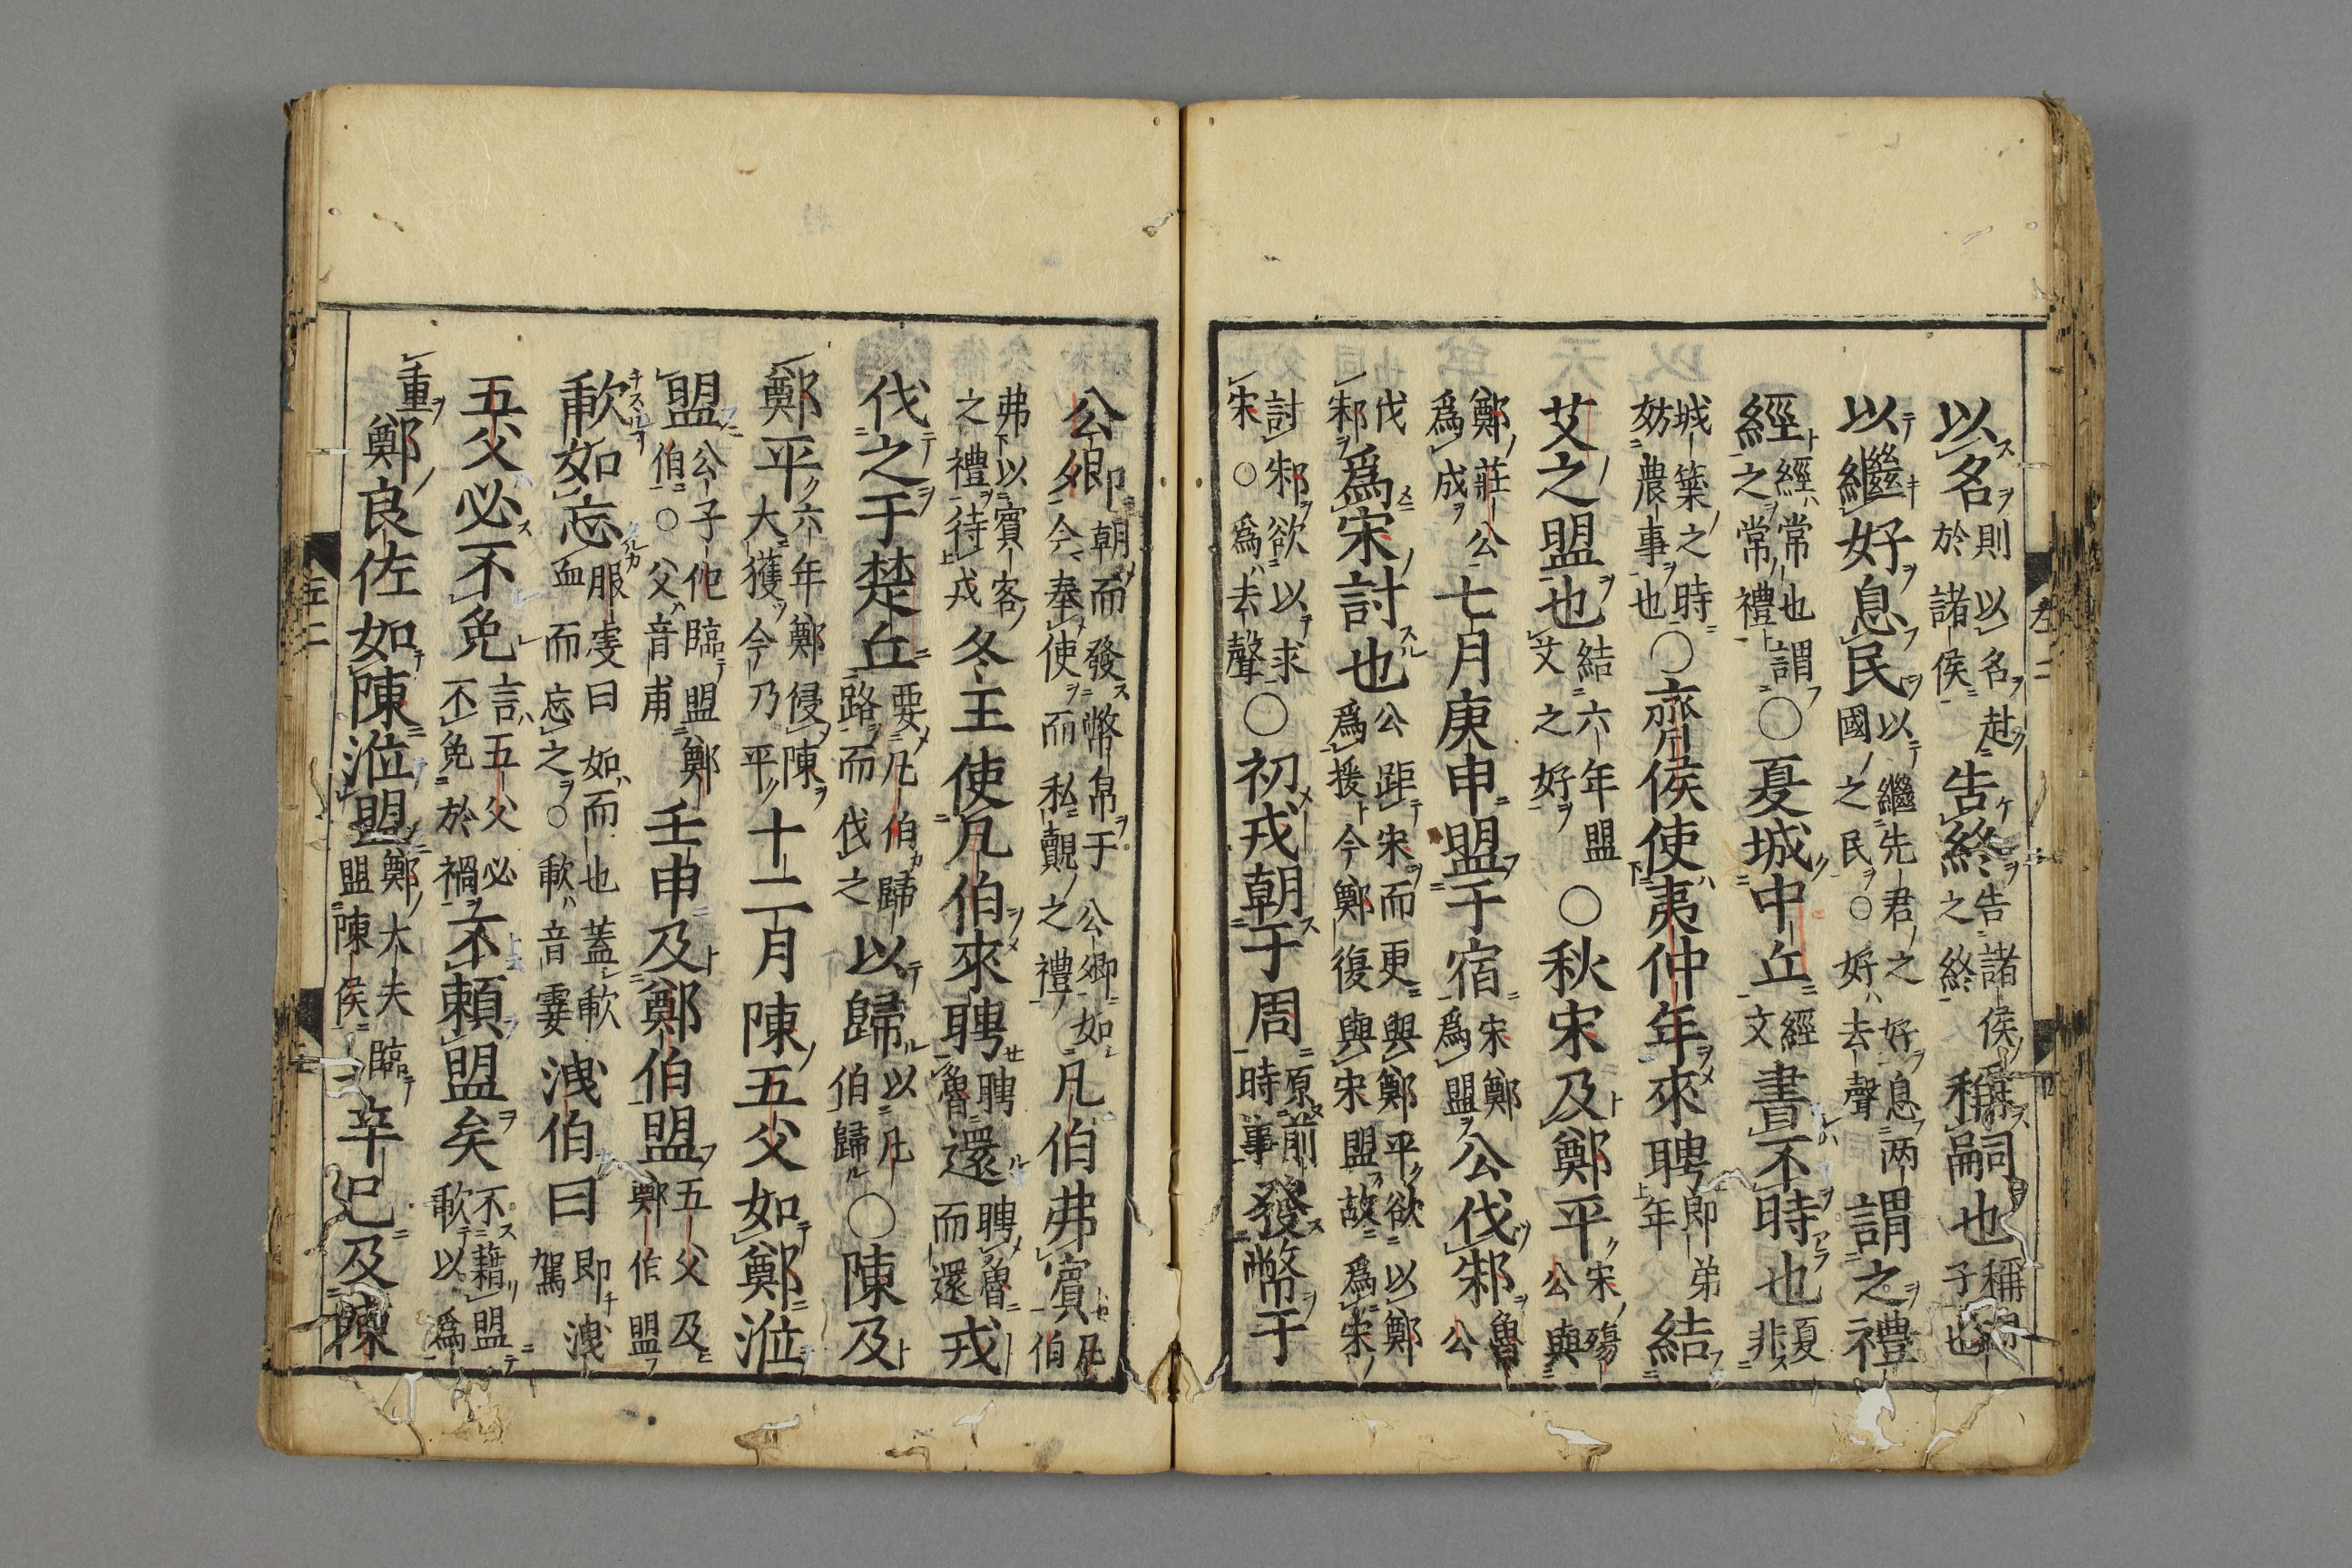 以名則以名赴於諸侯告終告諸侯之終稱嗣也稱嗣子也
以繼好息民以繼先君之好息兩國之民○好去聲謂之禮
經經常也謂之常禮○夏城中丘經文書不時也夏非
城築之時妨農事也○齊侯使夷仲年來聘即弟年結
艾之盟也結六年盟艾之好○秋宋及鄭平宋殤公與
鄭莊公爲成七月庚申盟于宿宋鄭爲盟公伐邾魯公
伐邾爲宋討也公距宋而更與鄭平欲以鄭爲援今鄭復與宋盟故爲宋
討邾欲以求宋○爲去聲○初戎朝于周原前時事發幣于
公卿朝而發幣帛于公卿如今奉使而私覿之禮凡伯弗賓凡伯
弗以賓客之禮待戎冬王使凡伯來聘聘魯還聘魯而還戎
伐之于楚丘要凡伯歸路而伐之以歸以凡伯歸○陳及
鄭平六年鄭侵陳大獲今乃平十二月陳五父如鄭涖
盟公子佗臨盟鄭伯○父音甫壬申及鄭伯盟五父及鄭作盟
歃如忘服虔曰如而也蓋歃血而忘之○歃音霎洩伯曰即洩駕
五父必不免言五父必不免於禍不賴盟矣不藉盟歃以爲
重鄭良佐如陳涖盟鄭大夫臨盟陳侯辛巳及陳
左二